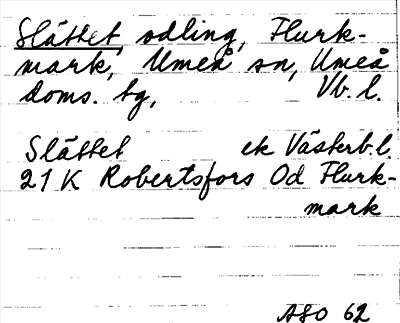 Slåttet, odling, Flurk-
mark, Umeå sn, Umeå
doms. tg, Vb. l.
Slåttet ek Västerb.l.
21 K Robertsfors Od Flurk-
mark
ASO 62